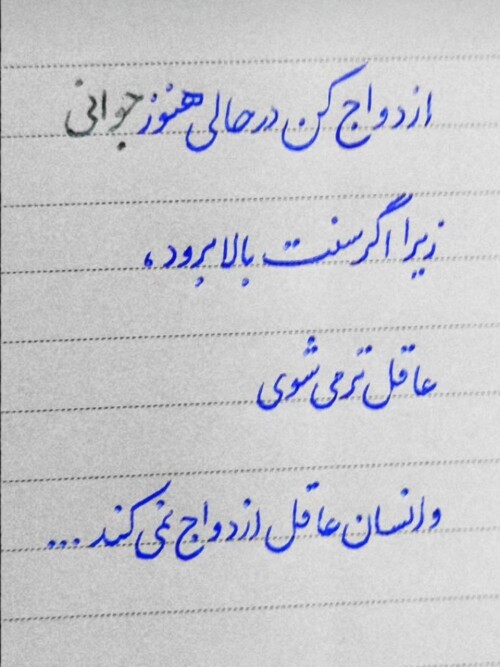 ازدواج کن در حالی هنوز جوانی
زیرا اگر سنت بالا برود،
عاقل تر می شوی
و انسان عاقل ازدواج نمی کند ...